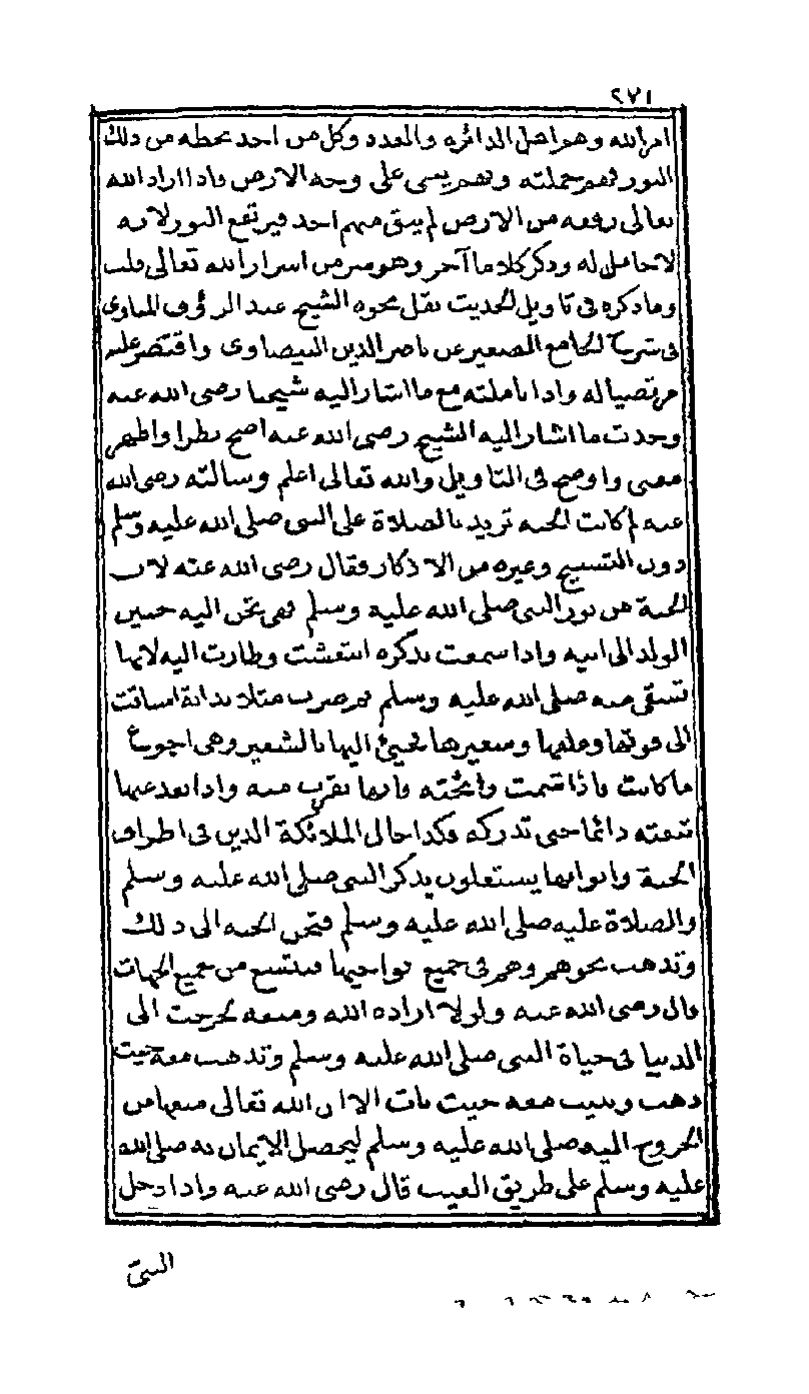 ٢٧١
امر الله وهو اهل الدائره والعدد وكل من احد يحطه من ذلك
النور فهم حملته وبهم يمشى على وجه الارض واذا اراد الله
تعالى رفعه من الارض لم يبق منهم احد فيرتفع النور لانه
لا حامل له وذكر كلاما آخر وهو سر من اسرار الله تعالى قلت
وما ذكره فى تاويل الحديث نقل نحوه الشيخ عبد الرؤف المناوى
فى شرح الجامع الصغير عن ناصر الدين البيضاوى واقتصر عليه
مرتضيا له واذا تاملته مع ما اشار اليه شيخنا رضى الله عنه
وجدت ما اشار اليه الشيخ رضى الله عنه اصح نظرا واظهر
معنى واوضح فى التاويل والله تعالى اعلم وسالته رضى الله
عنه لم كانت الجنه تزيد بالصلاة على النبى صلى الله عليه وسلم
دون التسبيح وغيره من الاذكار فقال رضى الله عنه لان
الجنة من نور النبى صلى الله عليه وسلم فهى تحن اليه حنين
الولد الى ابيه واذا سمعت بذكره انتعشت وطارت اليه لانها
تسقى منه صلى الله عليه وسلم ثم ضرب مثلا بدابة اشتاقت
الى قوتها وعلفها وشعيرها فجيئ اليها بالشعير وهى اجوع
ما كانت فاذا شمت رائحته فانها تقرب منه واذا بعد عنها
تبعته دائما حتى تدركه فكذا حال الملائكة الذين فى اطراف
الجنة وابوابها يشتغلون بذكر النبى صلى الله عليه وسلم
والصلاة عليه صلى الله عليه وسلم فتحن الجنه الى ذلك
وتذهب نحوهم وهم فى جميع نواحيها فتتسع من جميع الجهات
قال رضى الله عنه ولولا اراده الله ومنعه لخرجت الى
الدنيا فى حياة النبى صلى الله عليه وسلم وتذهب معه حيث
ذهب وتبيت معه حيث بات الا ان الله تعالى منعها من
الخروج اليه صلى الله عليه وسلم ليحصل الايمان به صلى الله
عليه وسلم على طريق الغيب قال رضى الله عنه واذا دخل
النبىّ